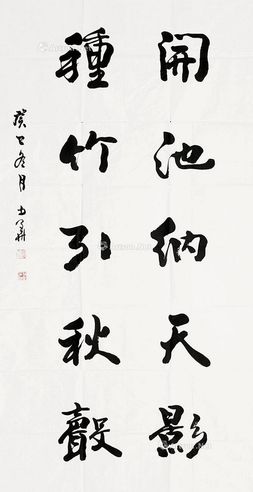 開池納天影
種竹引秋聲
癸巳冬月